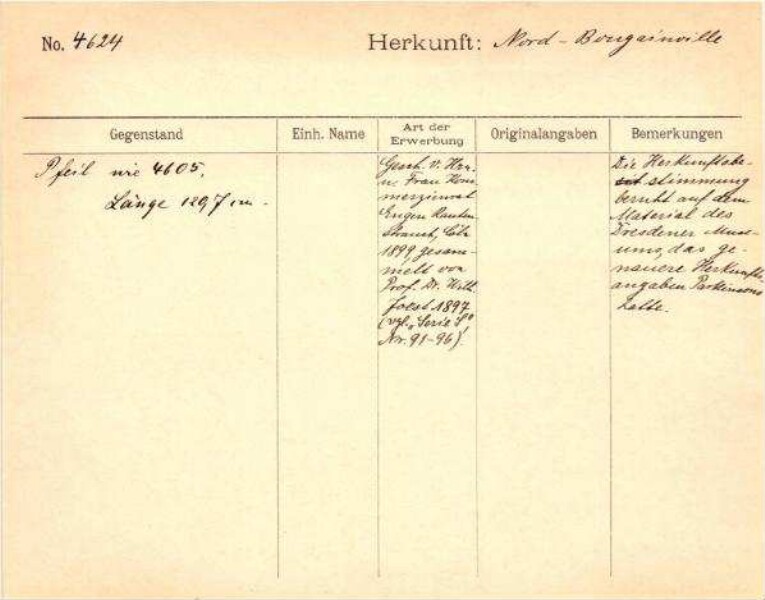 No. 4624
Herkunft: Nord-Bougainville
Gegenstand
Einh. Name
Art der Erwerbung
Originalangaben
Bemerkungen
Pfeil wie 4605.
Länge 129,7 cm.
Gesch. v. Hrn.
u. Frau Kom-
merzienrat
Eugen Rauten-
strauch, Cöln
1899, gesam-
melt von
Prof. Dr. Wilh.
Joest 1897
(vgl. „Serie S"
Nr. 91-96).
Die Herkunftsbe-
stimmung
beruht auf dem
Material des
Dresdener Muse-
ums, das ge-
nauere Herkunfts-
angaben Parkinsons
hatte.